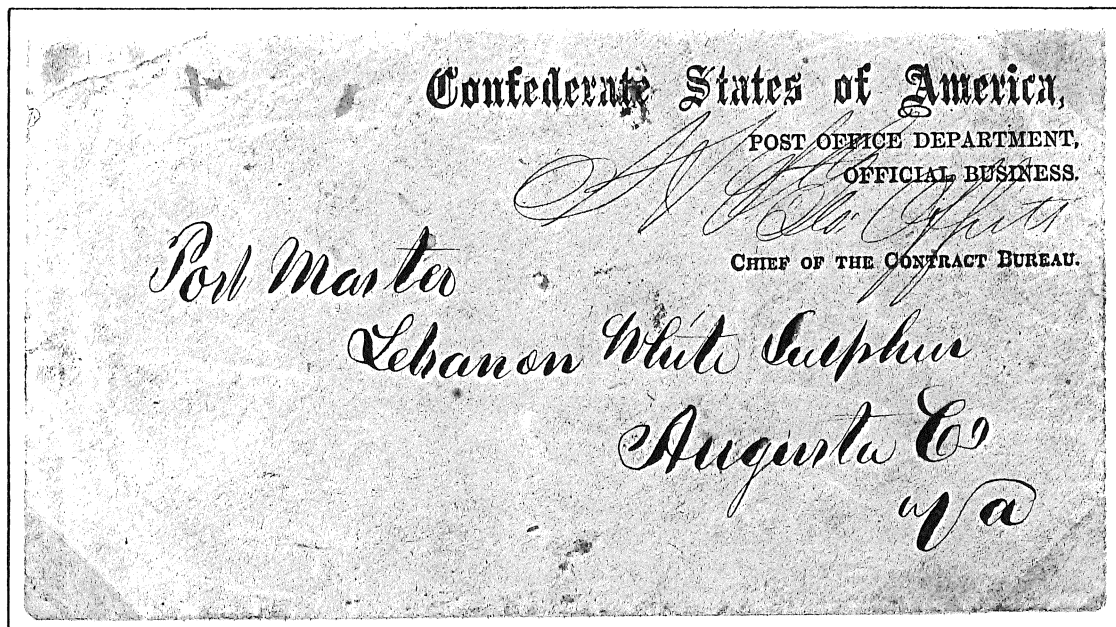 Confederate States of America,
POST OFFICE DEPARTMENT,
OFFICIAL BUSINESS.
CHIEF OF THE CONTRACT BUREAU.
Post Master
Lebanon White Sulphur
Augusta Co
Va